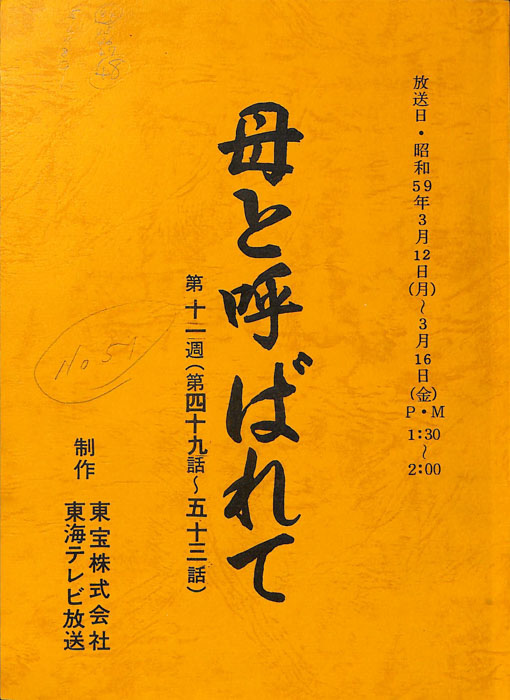 放送日・昭和59年3月12日(月)～3月16日(金)
P・M
1:30
～
2:00
母と呼ばれて
第十一週(第四十九話～五十三話)
No 51
制作
東宝株式会社
東海テレビ放送